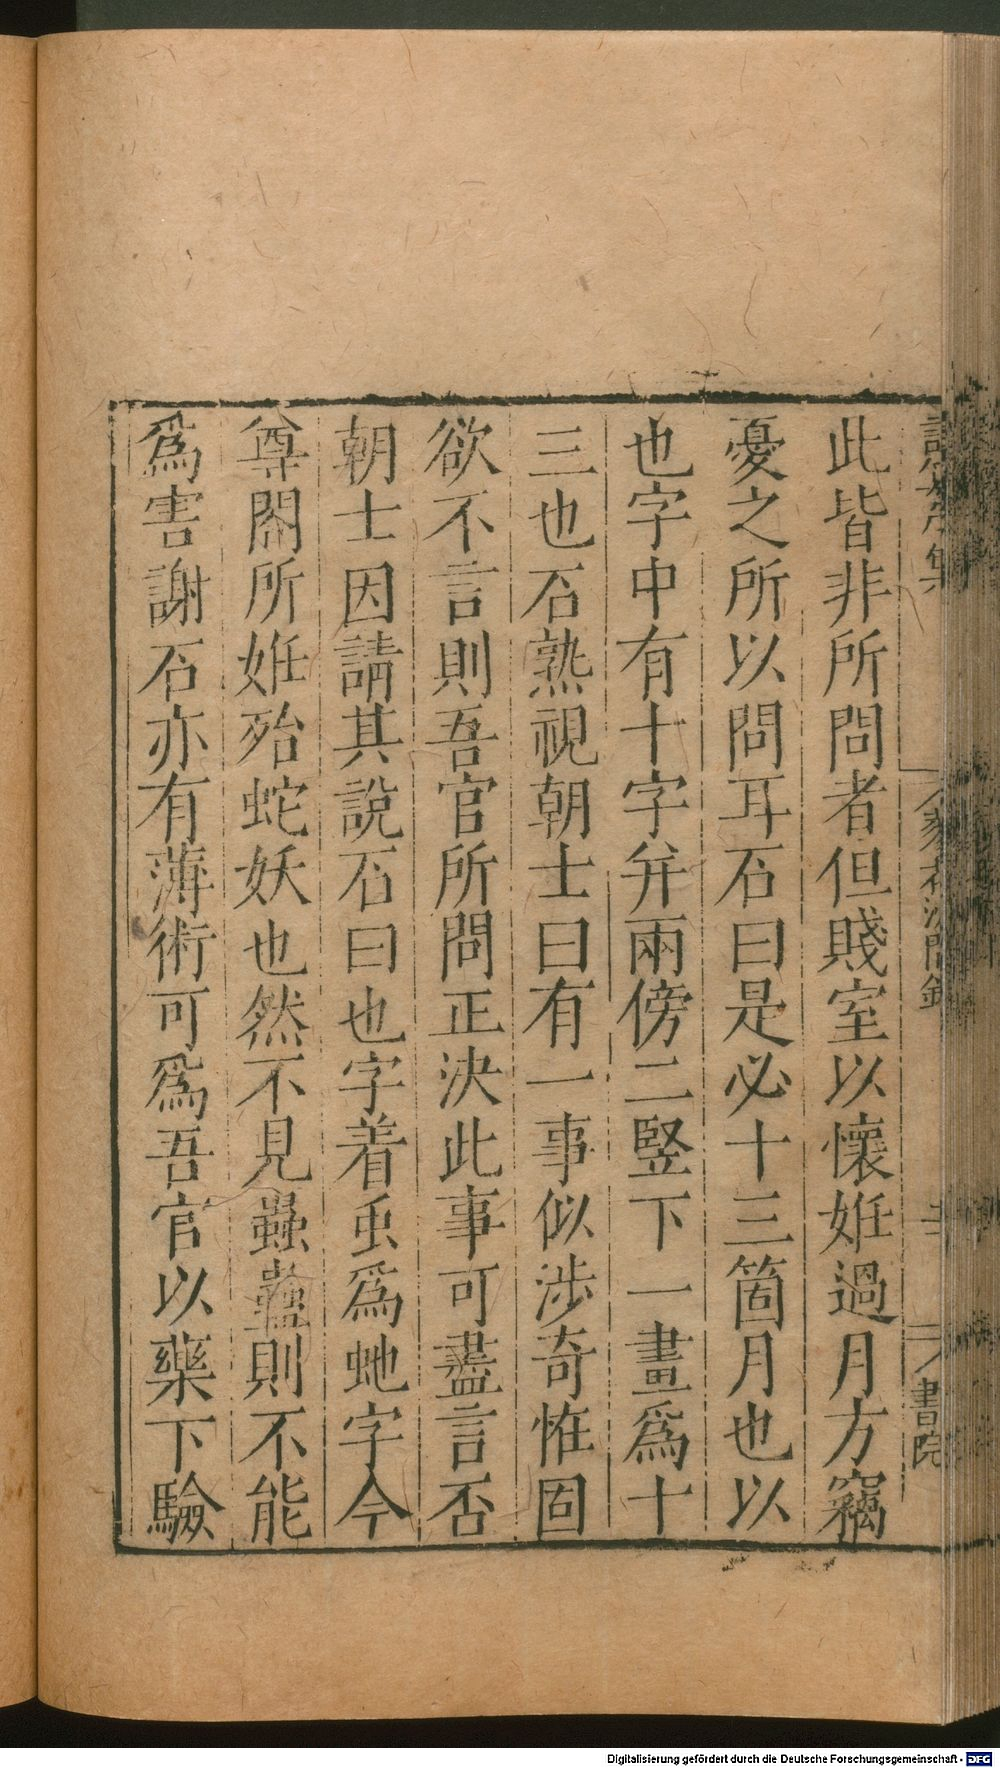 集
書院
此皆非所問者但賤室以懷姙過月方竊
憂之所以問耳石曰是必十三箇月也以
也字中有十字并兩傍二竪下一畫爲十
三也石熟視朝士曰有一事似涉奇恠固
欲不言則吾官所問正決此事可盡言否
朝士因請其說石曰也字着虫爲虵字今
尊閤所姙殆蛇妖也然不見蟲蠱則不能
爲害謝石亦有薄術可爲吾官以藥下驗
Digitalisierung gefördert durch die Deutsche Forschungsgemeinschaft - DFG